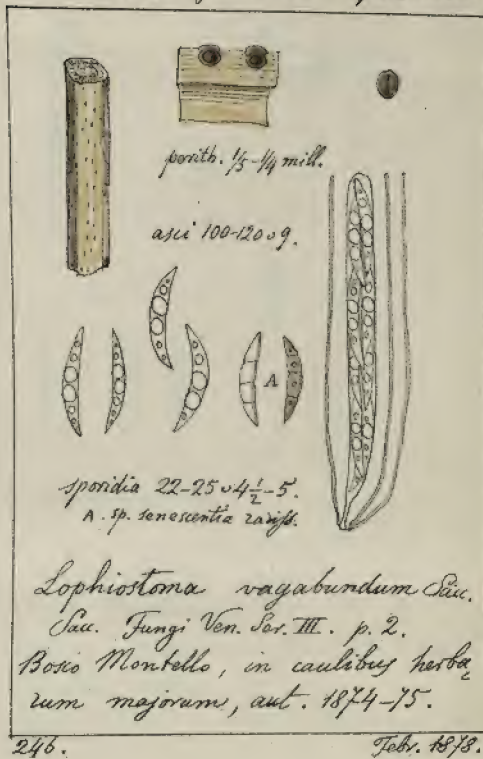 perith. 1/5-1/4 mill.
asci 100-120 ᴗ 9.
A
sporidia 22-25 ᴗ 4 1/2-5.
A. sp. senescentia rariss.
Lophiostoma vagabundum Sacc.
Sacc. Fungi Ven. Ser. III. p. 2.
Bosco Montello, in caulibus herba=
rum majorum, aut. 1874-75.
246. Febr. 1878.